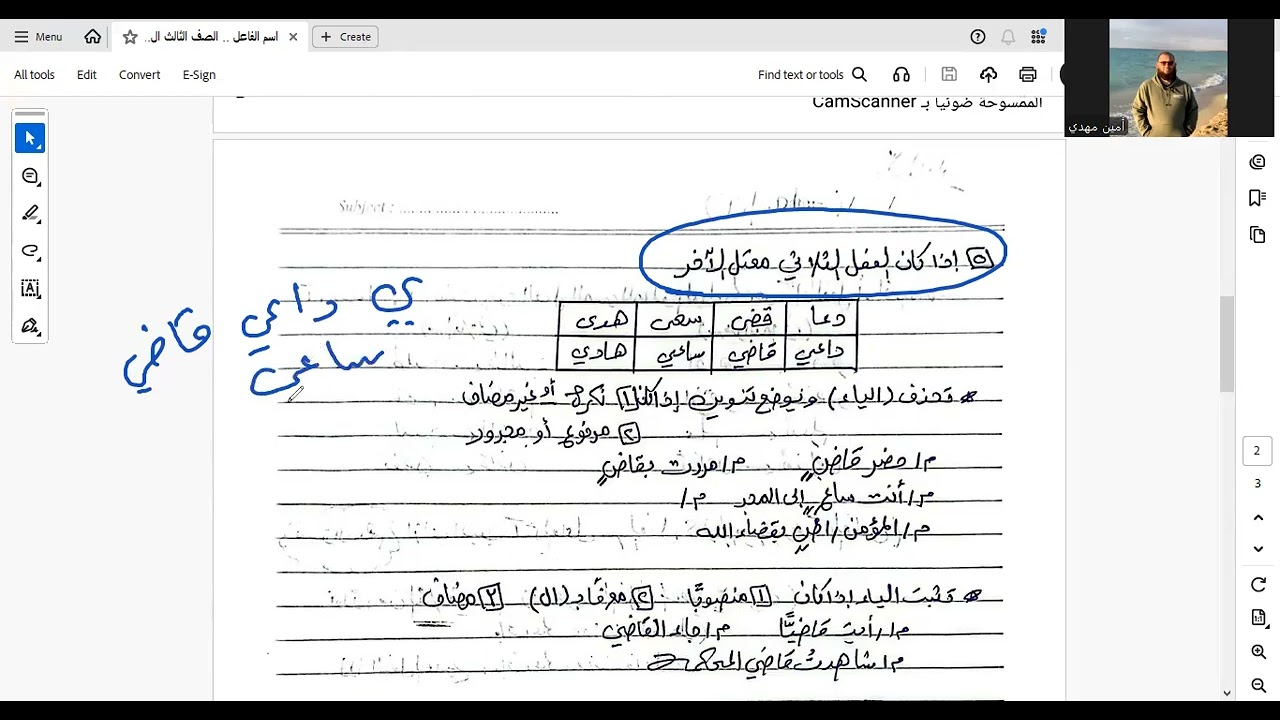 Menu
اسم الفاعل .. الصف الثالث ال..
Create
All tools
Edit
Convert
E-Sign
Find text or tools
الممسوحة ضوئيا بـ CamScanner
أمين مهدي
Subject :
٥ إذا كان الفعل الثلاثي معتل الآخر
ي داعي قاضي
ساعي
دعا قضى سعى هدى
داعي قاضي ساعي هادي
تحذف (الياء) ونوضع تنوين إذا كان ١ نكرة أو غير مضاف
٢ مرفوع أو مجرور
م/ حضر قاضٍ م/ مررت بقاضٍ
م/ أنت ساعٍ إلى المجد م/
م/ المؤمن راضٍ بقضاء الله
تثبت الياء إذا كان ١ منصوبًا ٢ معرفًا بـ (ال) ٣ مضاف
م/ رأيت قاضيًّا م/ جاء القاضي
م/ شاهدتُ قاضي المحكمة
2
3